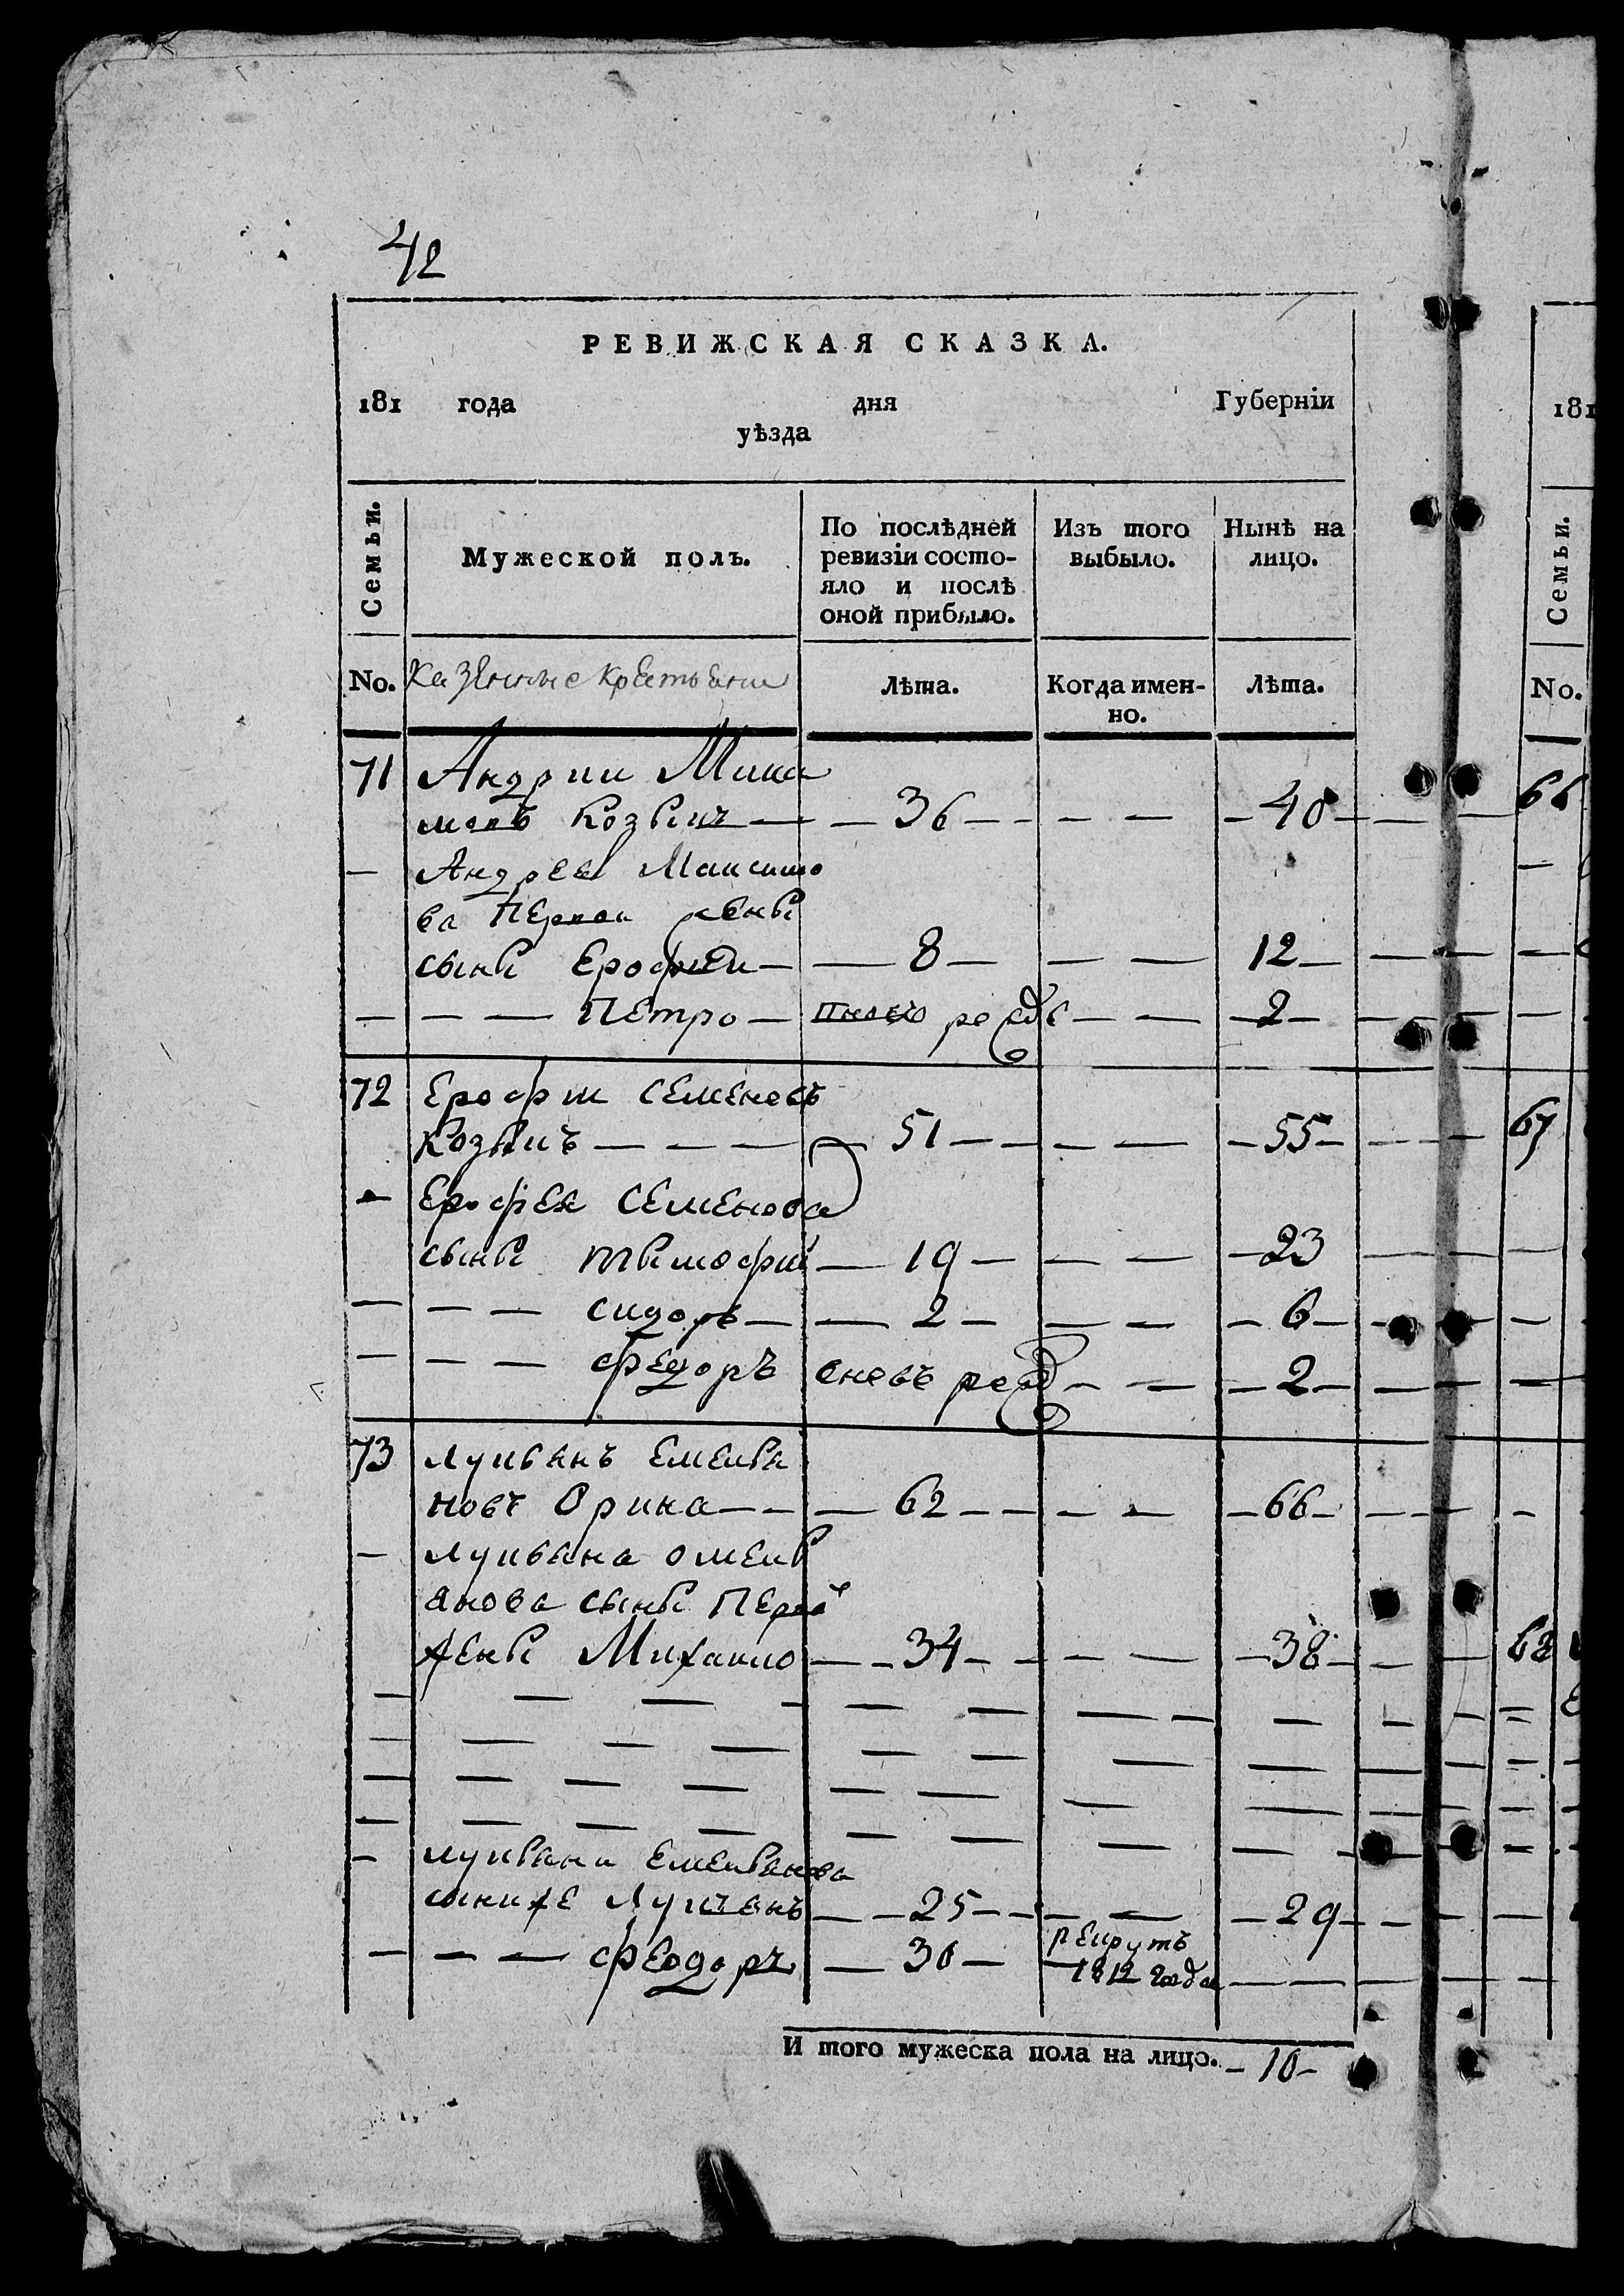 42
РЕВИЖСКАЯ СКАЗКА.
181 года дня Губернїи
уѣзда
Семьи. Мужеской полъ. По послѣдней ревизїи состояло и послѣ оной прибыло. Изъ того выбыло. Нынѣ на лицо.
No. Казенные крестьяни Лѣта. Когда именно. Лѣта.
71 Андрии
Козвинъ — 36 — 40
— Андрея Максимо
ва первои жены
сынъ Ерофии — 8 — 12
— Петро — 2
72 Ерофии Семеновъ
Козвинъ — 51 — 55
— Ерофея Семенова
сынъ Тимофии — 19 — 23
— сидоръ — 2 — 6
— федоръ — 2
73 Лукьянъ Емелья
новъ — 62 — 66
— Лукьяна
янова сынъ перво
жены Михаило — 34 — 38
— Лукьяна Емельянова
— 25 — 29
— феодоръ — 30 рекрутъ
1812 года
И того мужеска пола на лицо. — 10 —
181
Семьи.
No.
66
67
68